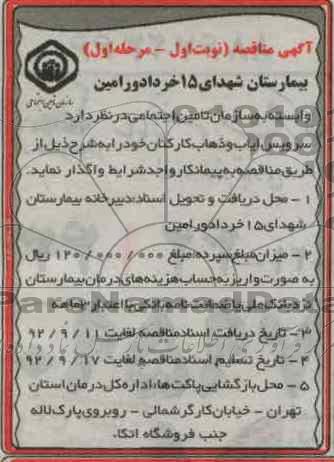 آگهی مناقصه (نوبت اول - مرحله اول)
بیمارستان شهدای ۱۵ خرداد ورامین
سازمان تامین اجتماعی
وابسته به سازمان تامین اجتماعی در نظر دارد
سرویس ایاب و ذهاب کارکنان خود را به شرح ذیل از
طریق مناقصه به پیمانکار واجد شرایط واگذار نماید.
۱ - محل دریافت و تحویل اسناد: دبیرخانه بیمارستان
شهدای ۱۵ خرداد ورامین
۲ - میزان مبلغ سپرده: مبلغ ۱۲۰/۰۰۰/۰۰۰ ریال
به صورت واریز به حساب هزینه‌های درمان بیمارستان
نزد بانک ملی یا ضمانت نامه بانکی با اعتبار ۳ ماهه
۳- تاریخ دریافت اسناد مناقصه لغایت ۹۲/۹/۱۱
۴- تاریخ تسلیم اسناد مناقصه لغایت ۹۲/۹/۱۷
۵ - محل بازگشایی پاکت‌ها: اداره کل درمان استان
تهران - خیابان کارگر شمالی - روبروی پارک لاله
جنب فروشگاه اتکا.